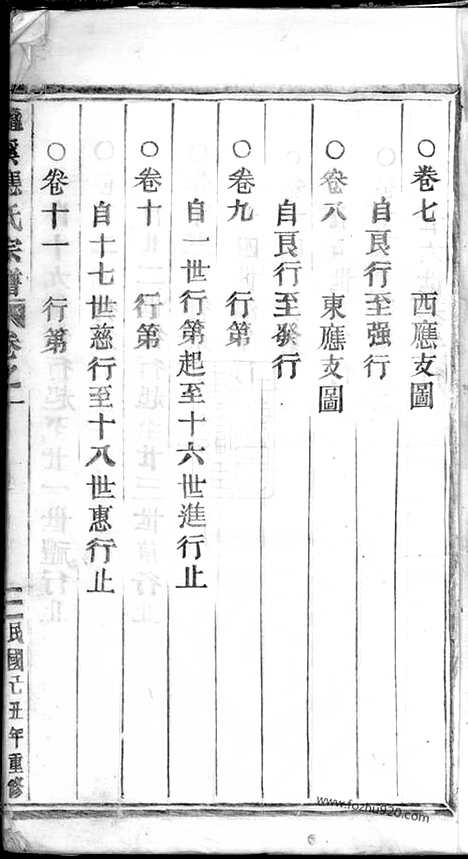 ○卷七　西應支圖
自良行至强行
○卷八　東應支圖
自良行至發行
○卷九　行第
自一世行第起至十六世進行止
○卷十　行第
自十七世慈行至十八世惠行止
○卷十一　行第
應氏宗譜 卷之一
民國己丑年重修
www.fozhu920.com